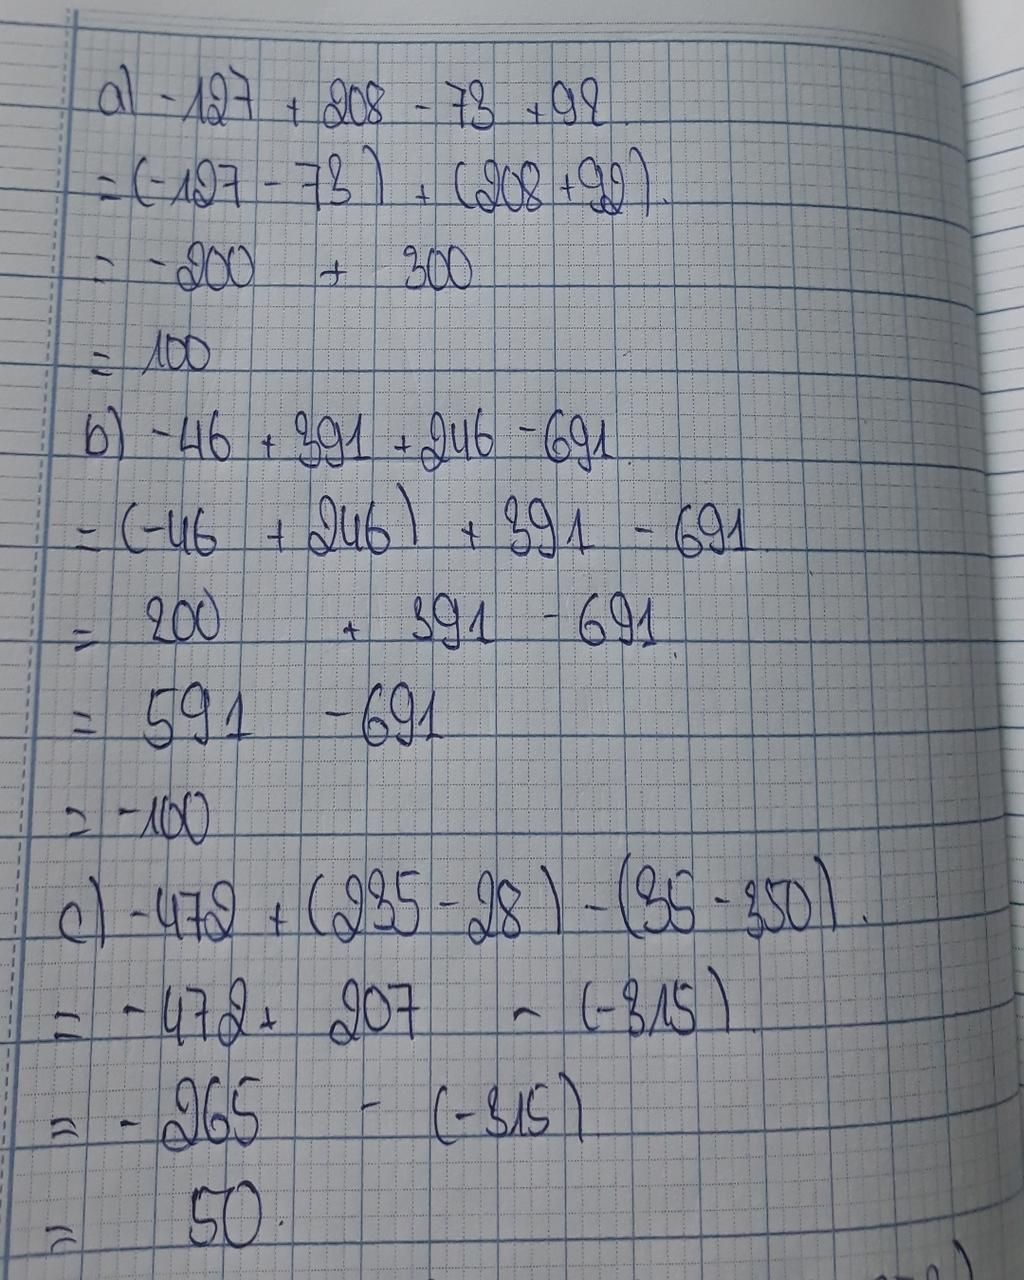 a) -127 + 208 - 73 + 92
= (-127 - 73) + (208 + 92).
= -200 + 300
= 100
b) -46 + 391 + 246 - 691
= (-46 + 246) + 391 - 691
= 200 + 391 - 691
= 591 - 691
= -100
c) -472 + (235 - 28) - (35 - 350).
= -472 + 207 - (-315)
= -265 - (-315)
= 50.